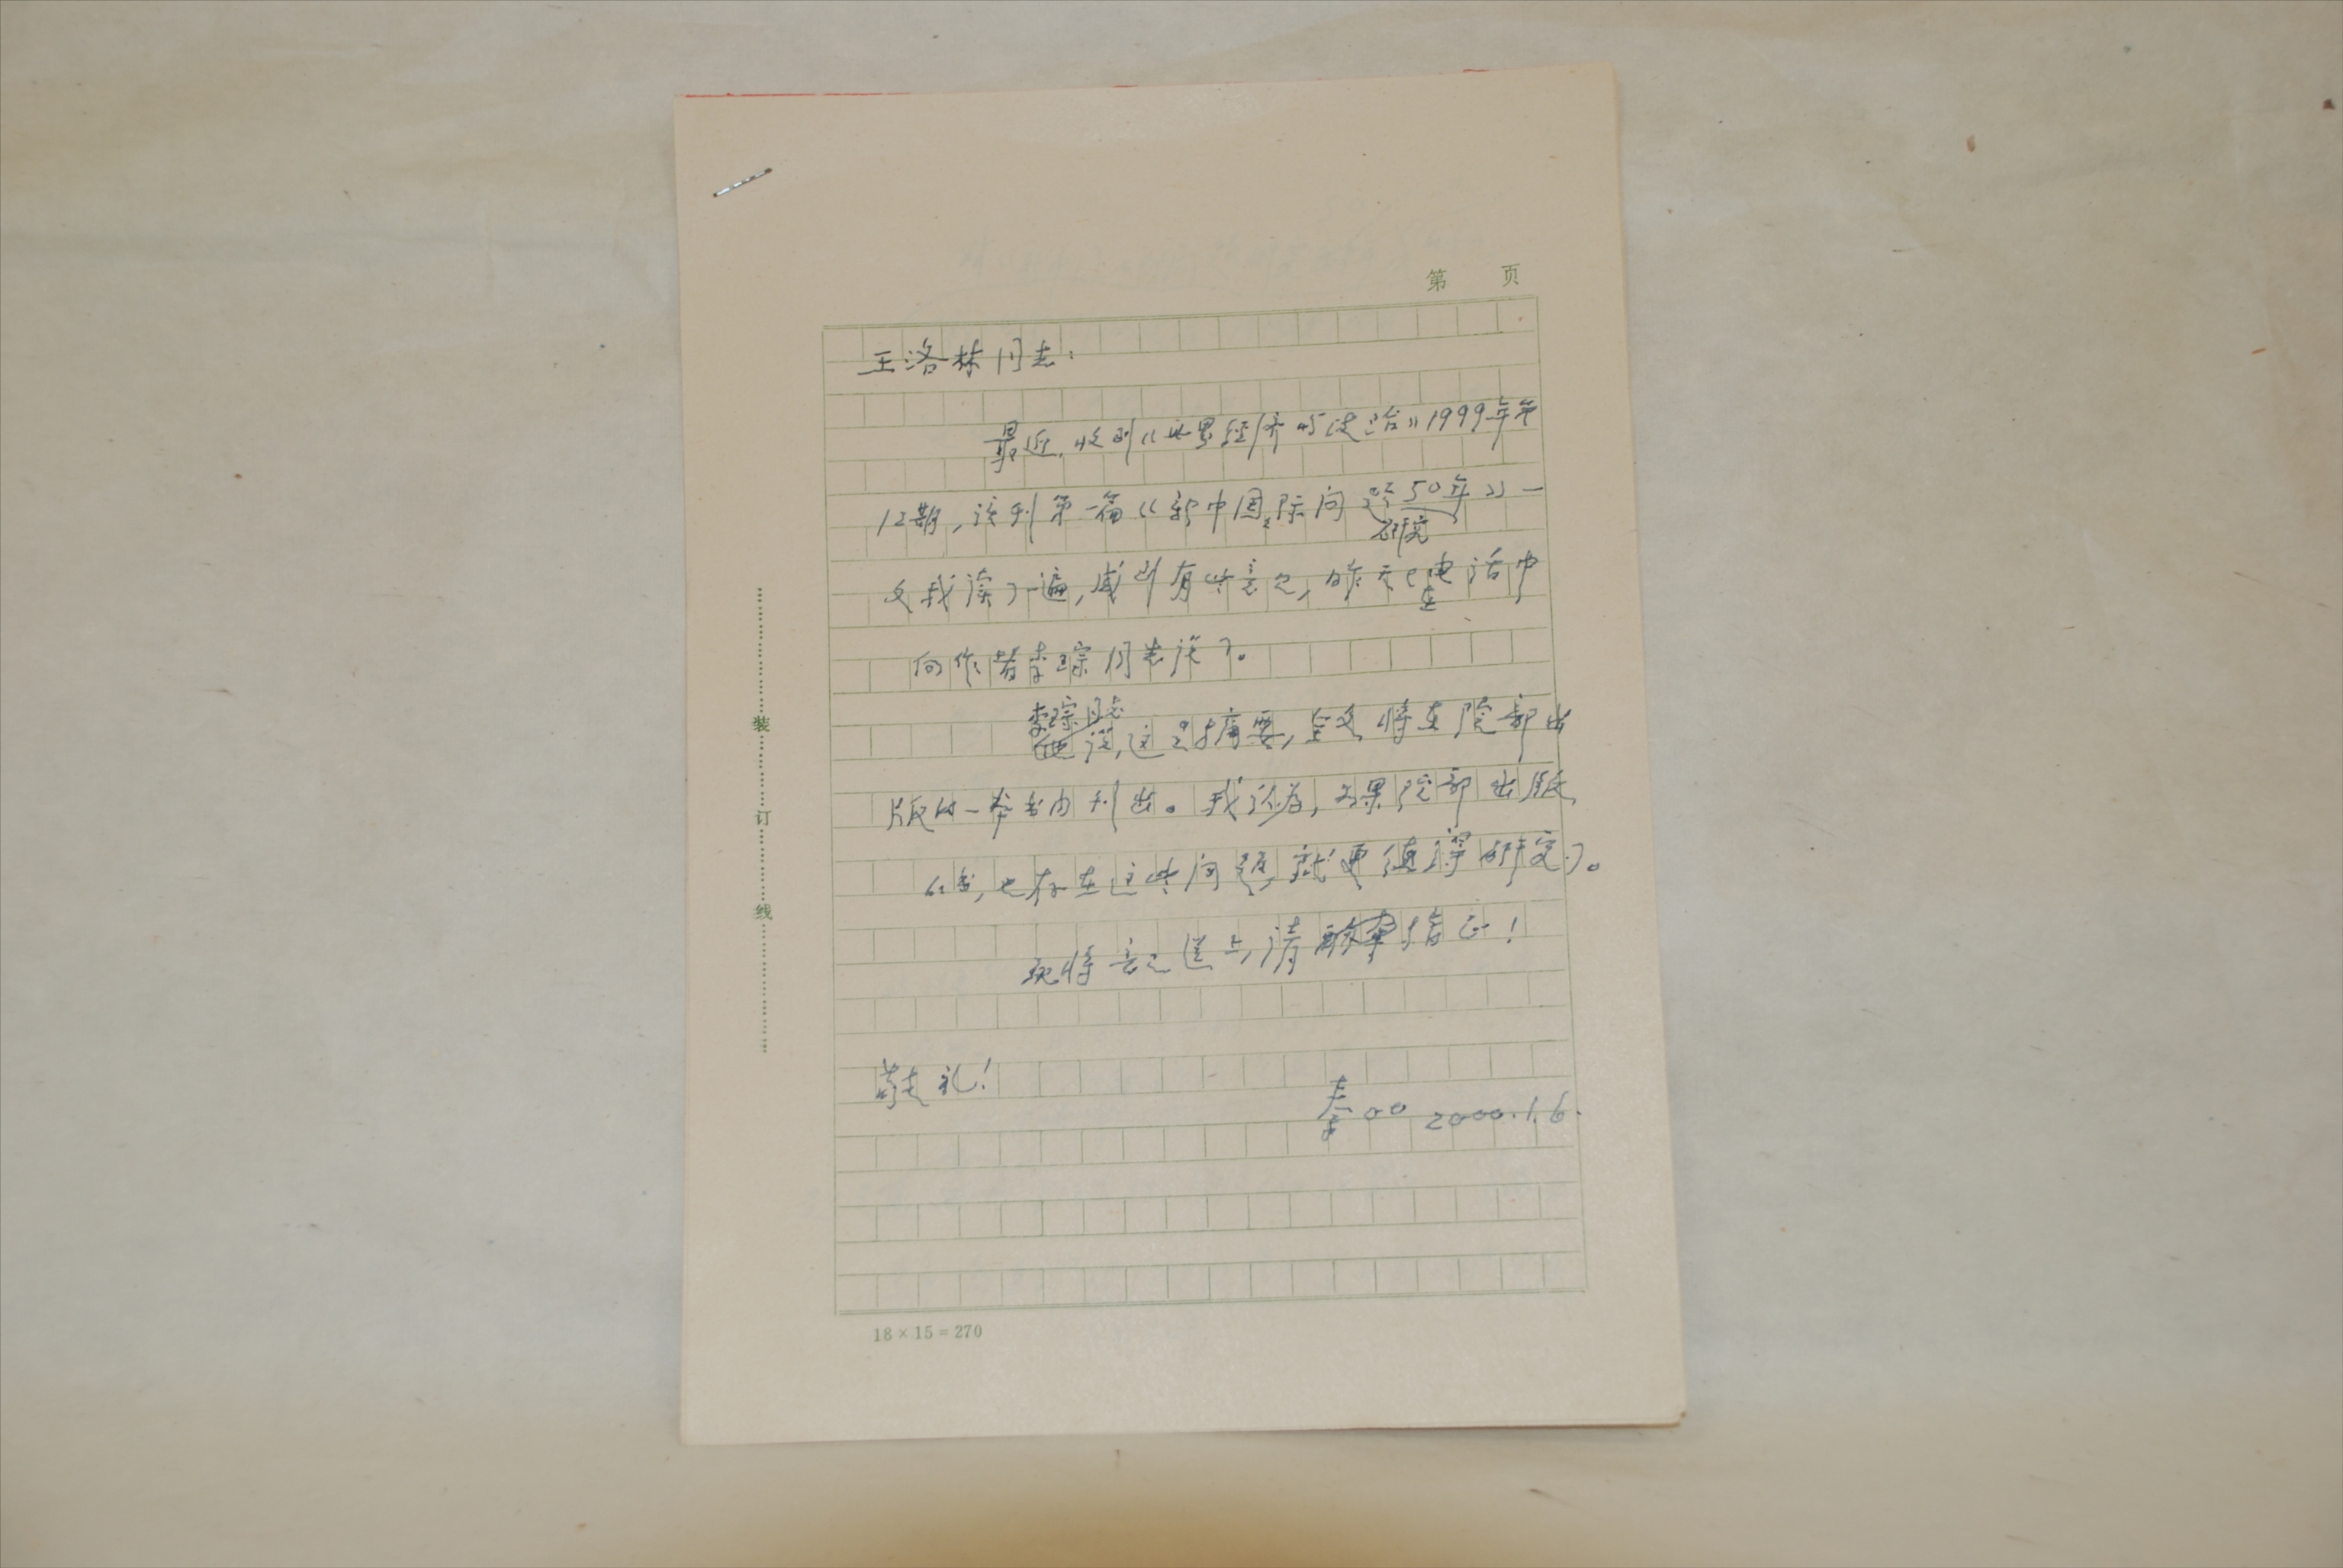 第 页
王洛林同志：
最近，收到《世界经济与政治》1999年第
12期，该刊第一篇《新中国国际问题研究50年》一
文我读了一遍，感到有些意见，昨天已在电话中
向作者李琮同志谈了。
李琮同志说，这是摘要，全文将在院部出
版的一本书内刊出。我认为，如果院部出版
的书，也存在这些问题，就更值得研究了。
现将意见送上，请审指正！
敬礼！
2000.1.6.
装
订
线
18×15=270